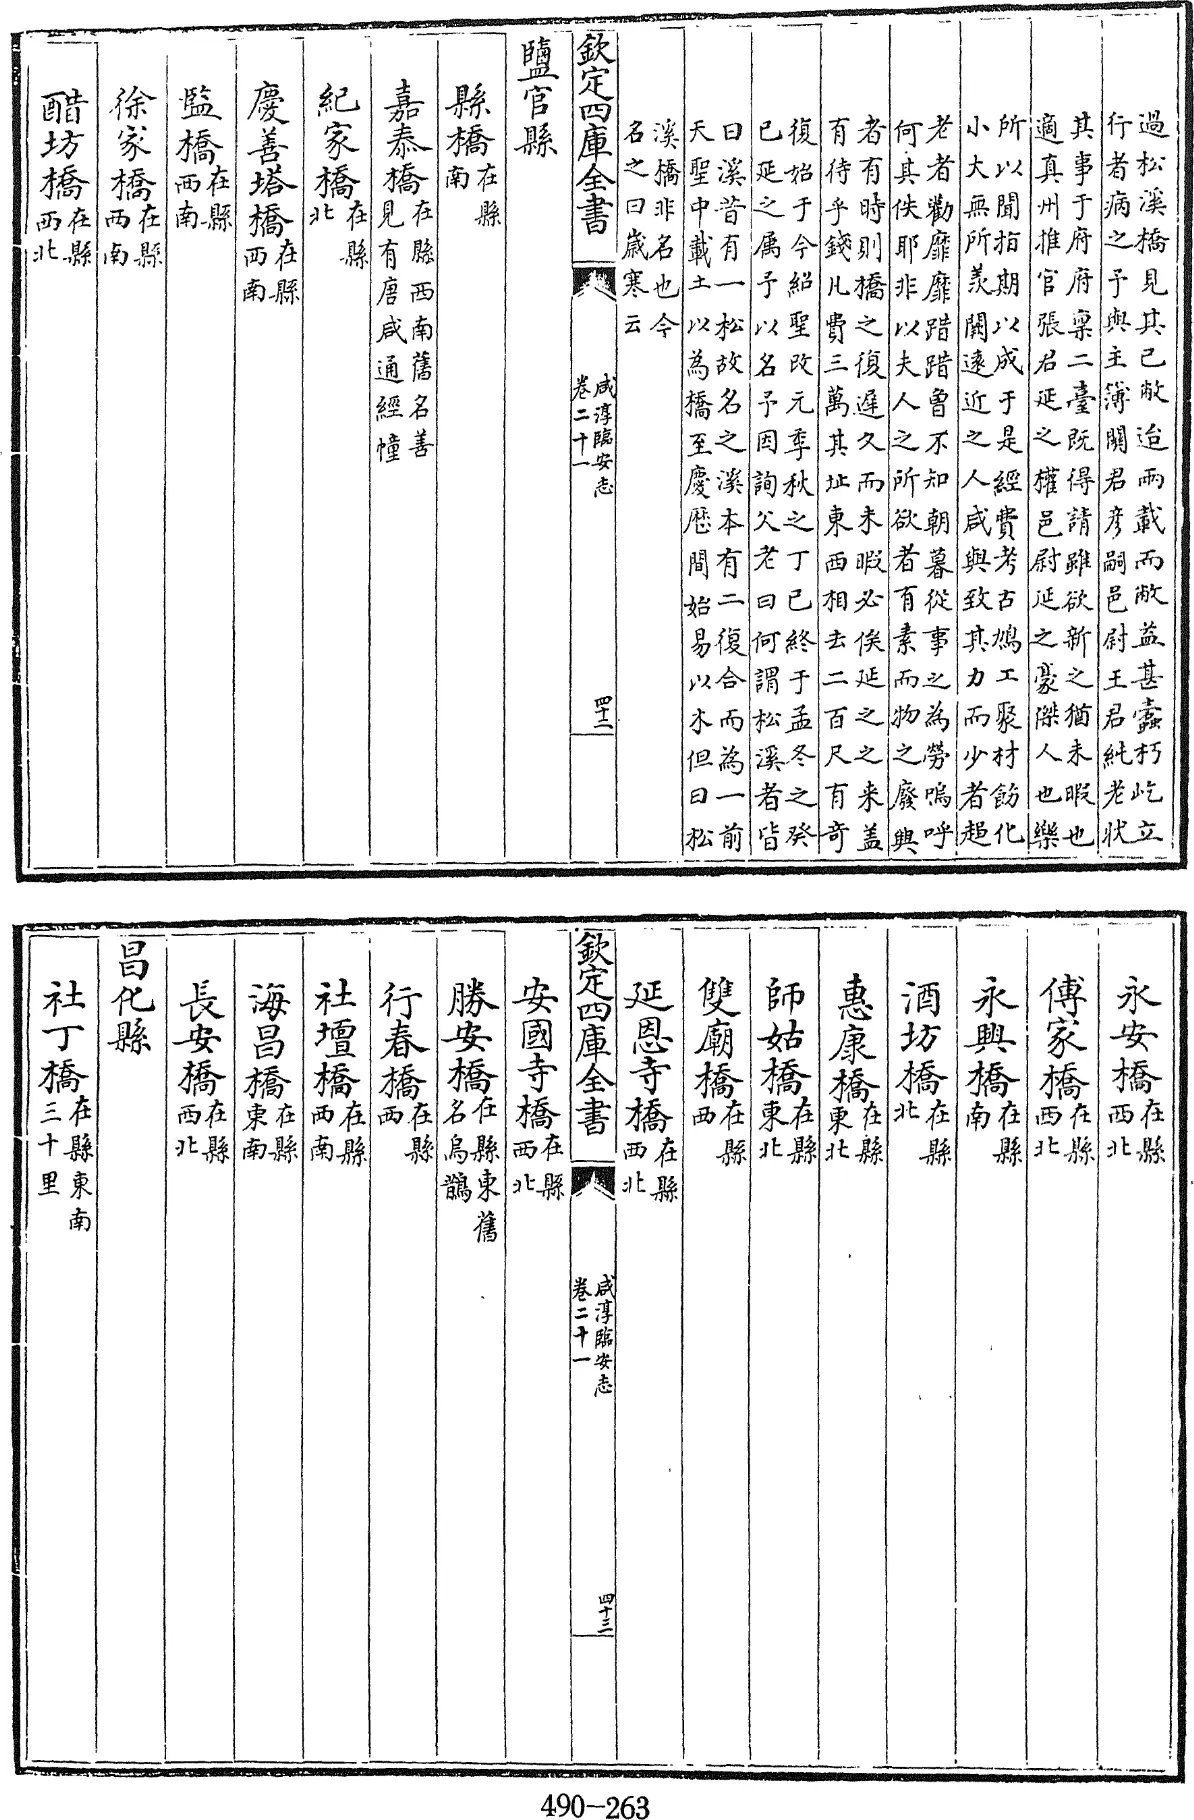 過松溪橋見其已敝迨兩載而敝益甚蠹朽屹立
行者病之予與主簿關君彥嗣邑尉王君純老狀
其事于府府稟二臺既得請雖欲新之猶未暇也
適真州推官張君延之權邑尉延之豪傑人也樂
所以聞指期以成于是經費考古鳩工聚材飭化
小大無所羨闕遠近之人咸與致其力而少者趨
老者勸靡靡踖踖曾不知朝暮從事之為勞嗚呼
何其佚耶非以夫人之所欲者有素而物之廢興
者有時則橋之復遲久而未暇必俟延之之来盖
有待乎錢凡費三萬其址東西相去二百尺有奇
復始于今紹聖改元季秋之丁已終于孟冬之癸
已延之属予以名予因詢父老曰何謂松溪者皆
曰溪昔有一松故名之溪本有二復合而為一前
天聖中載土以為橋至慶歷間始易以木但曰松
溪橋非名也今
名之曰歲寒云
欽定四庫全書
咸淳臨安志
卷二十一
四十二
鹽官縣
縣橋在縣南
嘉泰橋在縣西南舊名善見有唐咸通經幢
紀家橋在縣北
慶善塔橋在縣西南
監橋在縣西南
徐家橋在縣西南
醋坊橋在縣西北
永安橋在縣西北
傅家橋在縣西北
永興橋在縣南
酒坊橋在縣北
惠康橋在縣東北
師姑橋在縣東北
雙廟橋在縣西
延恩寺橋在縣西北
欽定四庫全書
咸淳臨安志
卷二十一
四十三
安國寺橋在縣西北
勝安橋在縣東舊名烏鵲
行春橋在縣西
社壇橋在縣西南
海昌橋在縣東南
長安橋在縣西北
昌化縣
社丁橋在縣東南三十里
490-263